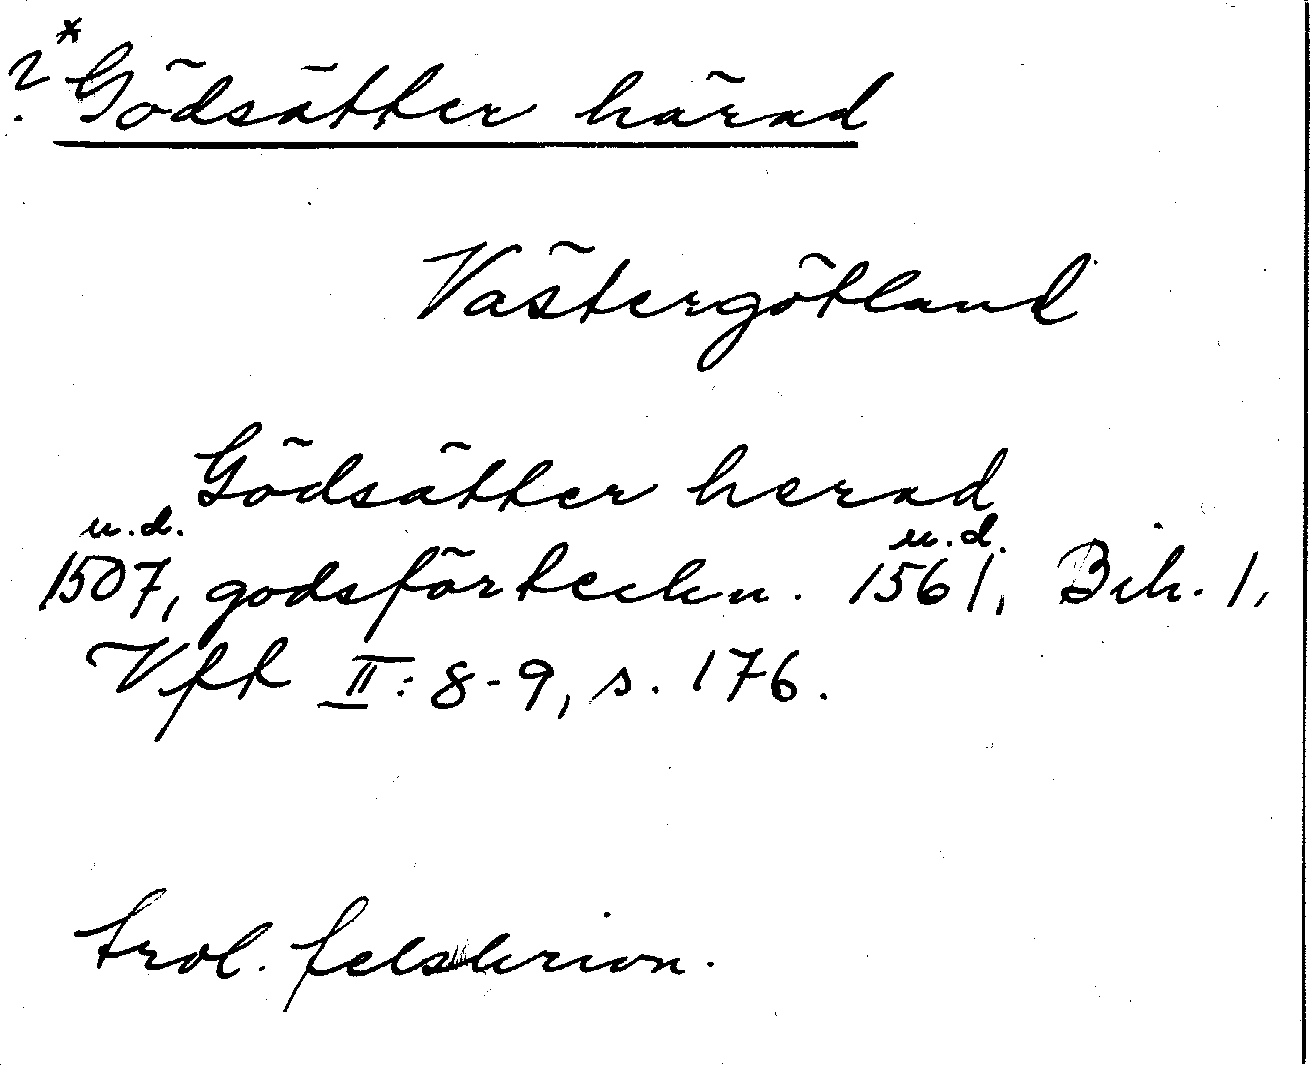 ?*Gödsätter härad
Västergötland
Gödsätter herad
u.d. u.d.
1507, godsförteckn. 1561, Bih. 1,
Vft II: 8-9, s. 176.
trol. felskrivn.